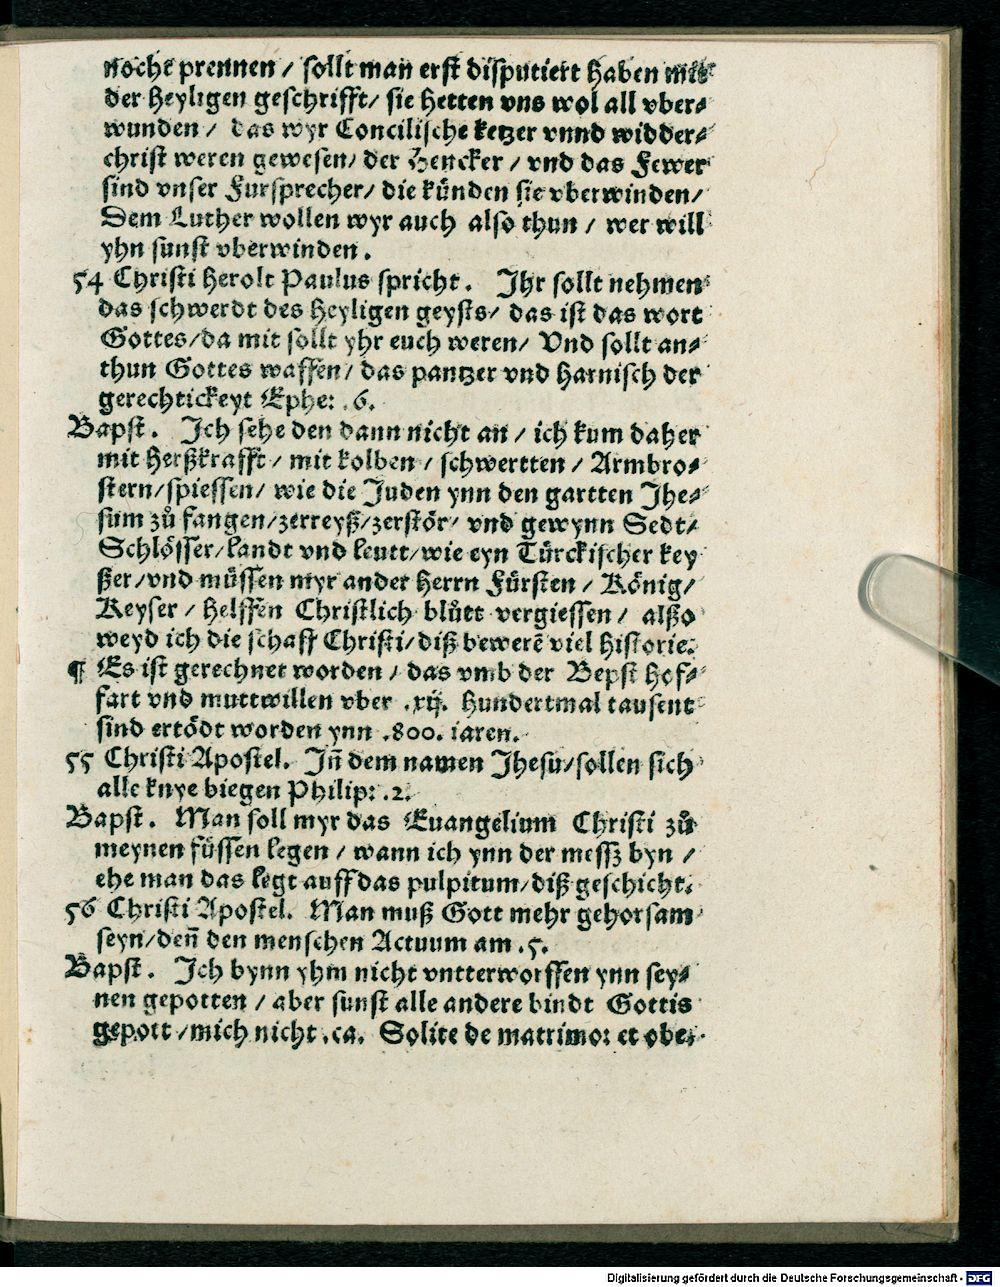 nocht prennen / sollt man erst disputiert haben mit
der Heyligen geschrifft/ sie hetten vns wol all vber⸗
wunden / das wyr Concilische ketzer vnnd widder⸗
christ weren gewesen/ der Hencker / vnd das Fewer
sind vnser Fursprecher/ die künden sie vberwinden/
Dem Luther wollen wyr auch also thun / wer will
yhn sunst vberwinden.
54 Christi Herolt Paulus spricht. Ihr sollt nehmen
das schwerdt des Heyligen geysts/ das ist das wort
Gottes/da mit sollt yhr euch weren/ Vnd sollt an⸗
thun Gottes waffen/ das pantzer vnd Harnisch der
gerechtickeyt Ephe: .6.
Bapst. Ich sehe den dann nicht an / ich kum daher
mit Herßkrafft / mit kolben / schwertten / Armbro⸗
stern/spiessen/ wie die Juden ynn den gartten Ihe⸗
sum zů fangen/zerreyß/zerstör/ vnd gewynn Sedt/
Schlösser/landt vnd leutt/wie eyn Türckischer key
ßer/vnd müssen myr ander Herrn Fürsten / König/
Keyser / helffen Christlich blůtt vergiessen / alßo
weyd ich die schaff Christi/diß bewerē viel Historie.
¶ Es ist gerechnet worden / das vmb der Bepst Hof⸗
fart vnd muttwillen vber .xij. Hundertmal tausent
sind ertödt worden ynn .800. iaren.
55 Christi Apostel. In̄ dem namen Jhesu/sollen sich
alle knye biegen Philip: .2.
Bapst. Man soll myr das Euangelium Christi zů
meynen füssen legen / wann ich ynn der messz byn /
ehe man das legt auff das pulpitum/diß geschicht.
56 Christi Apostel. Man muß Gott mehr gehorsam
seyn/den̄ den menschen Actuum am .5.
Bapst. Ich bynn yhm nicht vntterworffen ynn sey⸗
nen gepotten / aber sunst alle andere bindt Gottis
gepott /mich nicht .ca. Solite de matrimo: et obe:
Digitalisierung gefördert durch die Deutsche Forschungsgemeinschaft - DFG